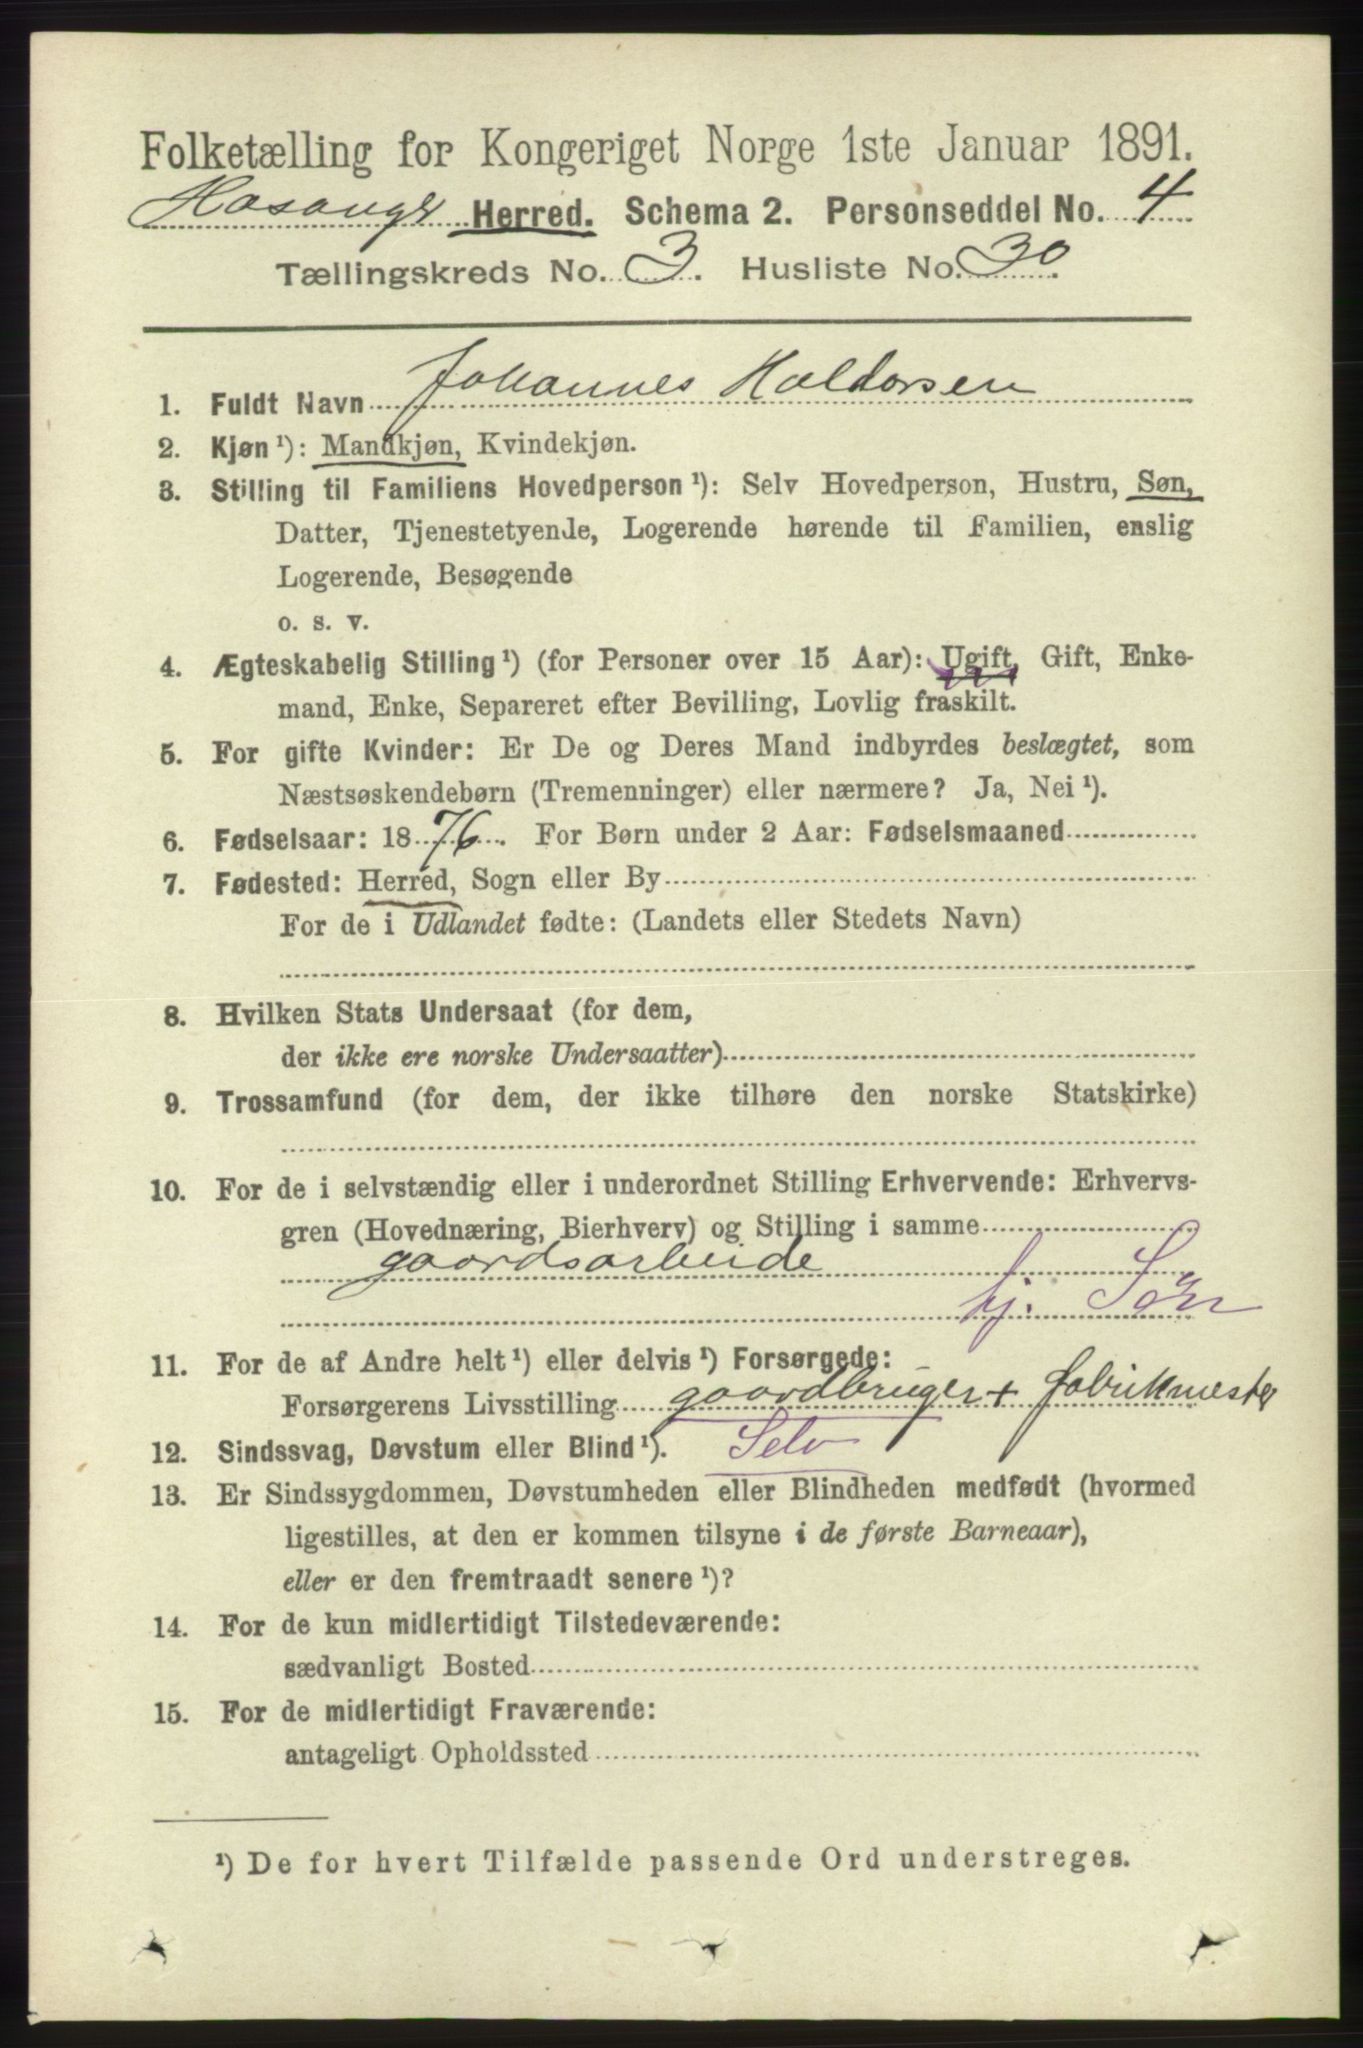 Folketælling for Kongeriget Norge 1ste Januar 1891.
Hosanger Herred. Schema 2. Personseddel No. 4
Tællingskreds No. 3. Husliste No. 30.
1. Fuldt Navn Johannes Haldorsen
2. Kjøn ¹): Mandkjøn, Kvindekjøn.
3. Stilling til Familiens Hovedperson ¹): Selv Hovedperson, Hustru, Søn,
Datter, Tjenestetyende, Logerende hørende til Familien, enslig
Logerende, Besøgende
o. s. v.
4. Ægteskabelig Stilling ¹) (for Personer over 15 Aar): Ugift, Gift, Enke-
mand, Enke, Separeret efter Bevilling, Lovlig fraskilt.
5. For gifte Kvinder: Er De og Deres Mand indbyrdes beslægtet, som
Næstsøskendebørn (Tremenninger) eller nærmere? Ja, Nei ¹).
6. Fødselsaar: 1876. For Børn under 2 Aar: Fødselsmaaned
7. Fødested: Herred, Sogn eller By
For de i Udlandet fødte: (Landets eller Stedets Navn)
8. Hvilken Stats Undersaat (for dem,
der ikke ere norske Undersaatter)
9. Trossamfund (for dem, der ikke tilhøre den norske Statskirke)
10. For de i selvstændig eller i underordnet Stilling Erhvervende: Erhvervs-
gren (Hovednæring, Bierhverv) og Stilling i samme
gaardsarbeide
hj. Søn
11. For de af Andre helt ¹) eller delvis ¹) Forsørgede:
Forsørgerens Livsstilling gaardbruger + fabrikmester
12. Sindssvag, Døvstum eller Blind ¹). Selv
13. Er Sindssygdommen, Døvstumheden eller Blindheden medfødt (hvormed
ligestilles, at den er kommen tilsyne i de første Barneaar),
eller er den fremtraadt senere ¹)?
14. For de kun midlertidigt Tilstedeværende:
sædvanligt Bosted
15. For de midlertidigt Fraværende:
antageligt Opholdssted
¹) De for hvert Tilfælde passende Ord understreges.